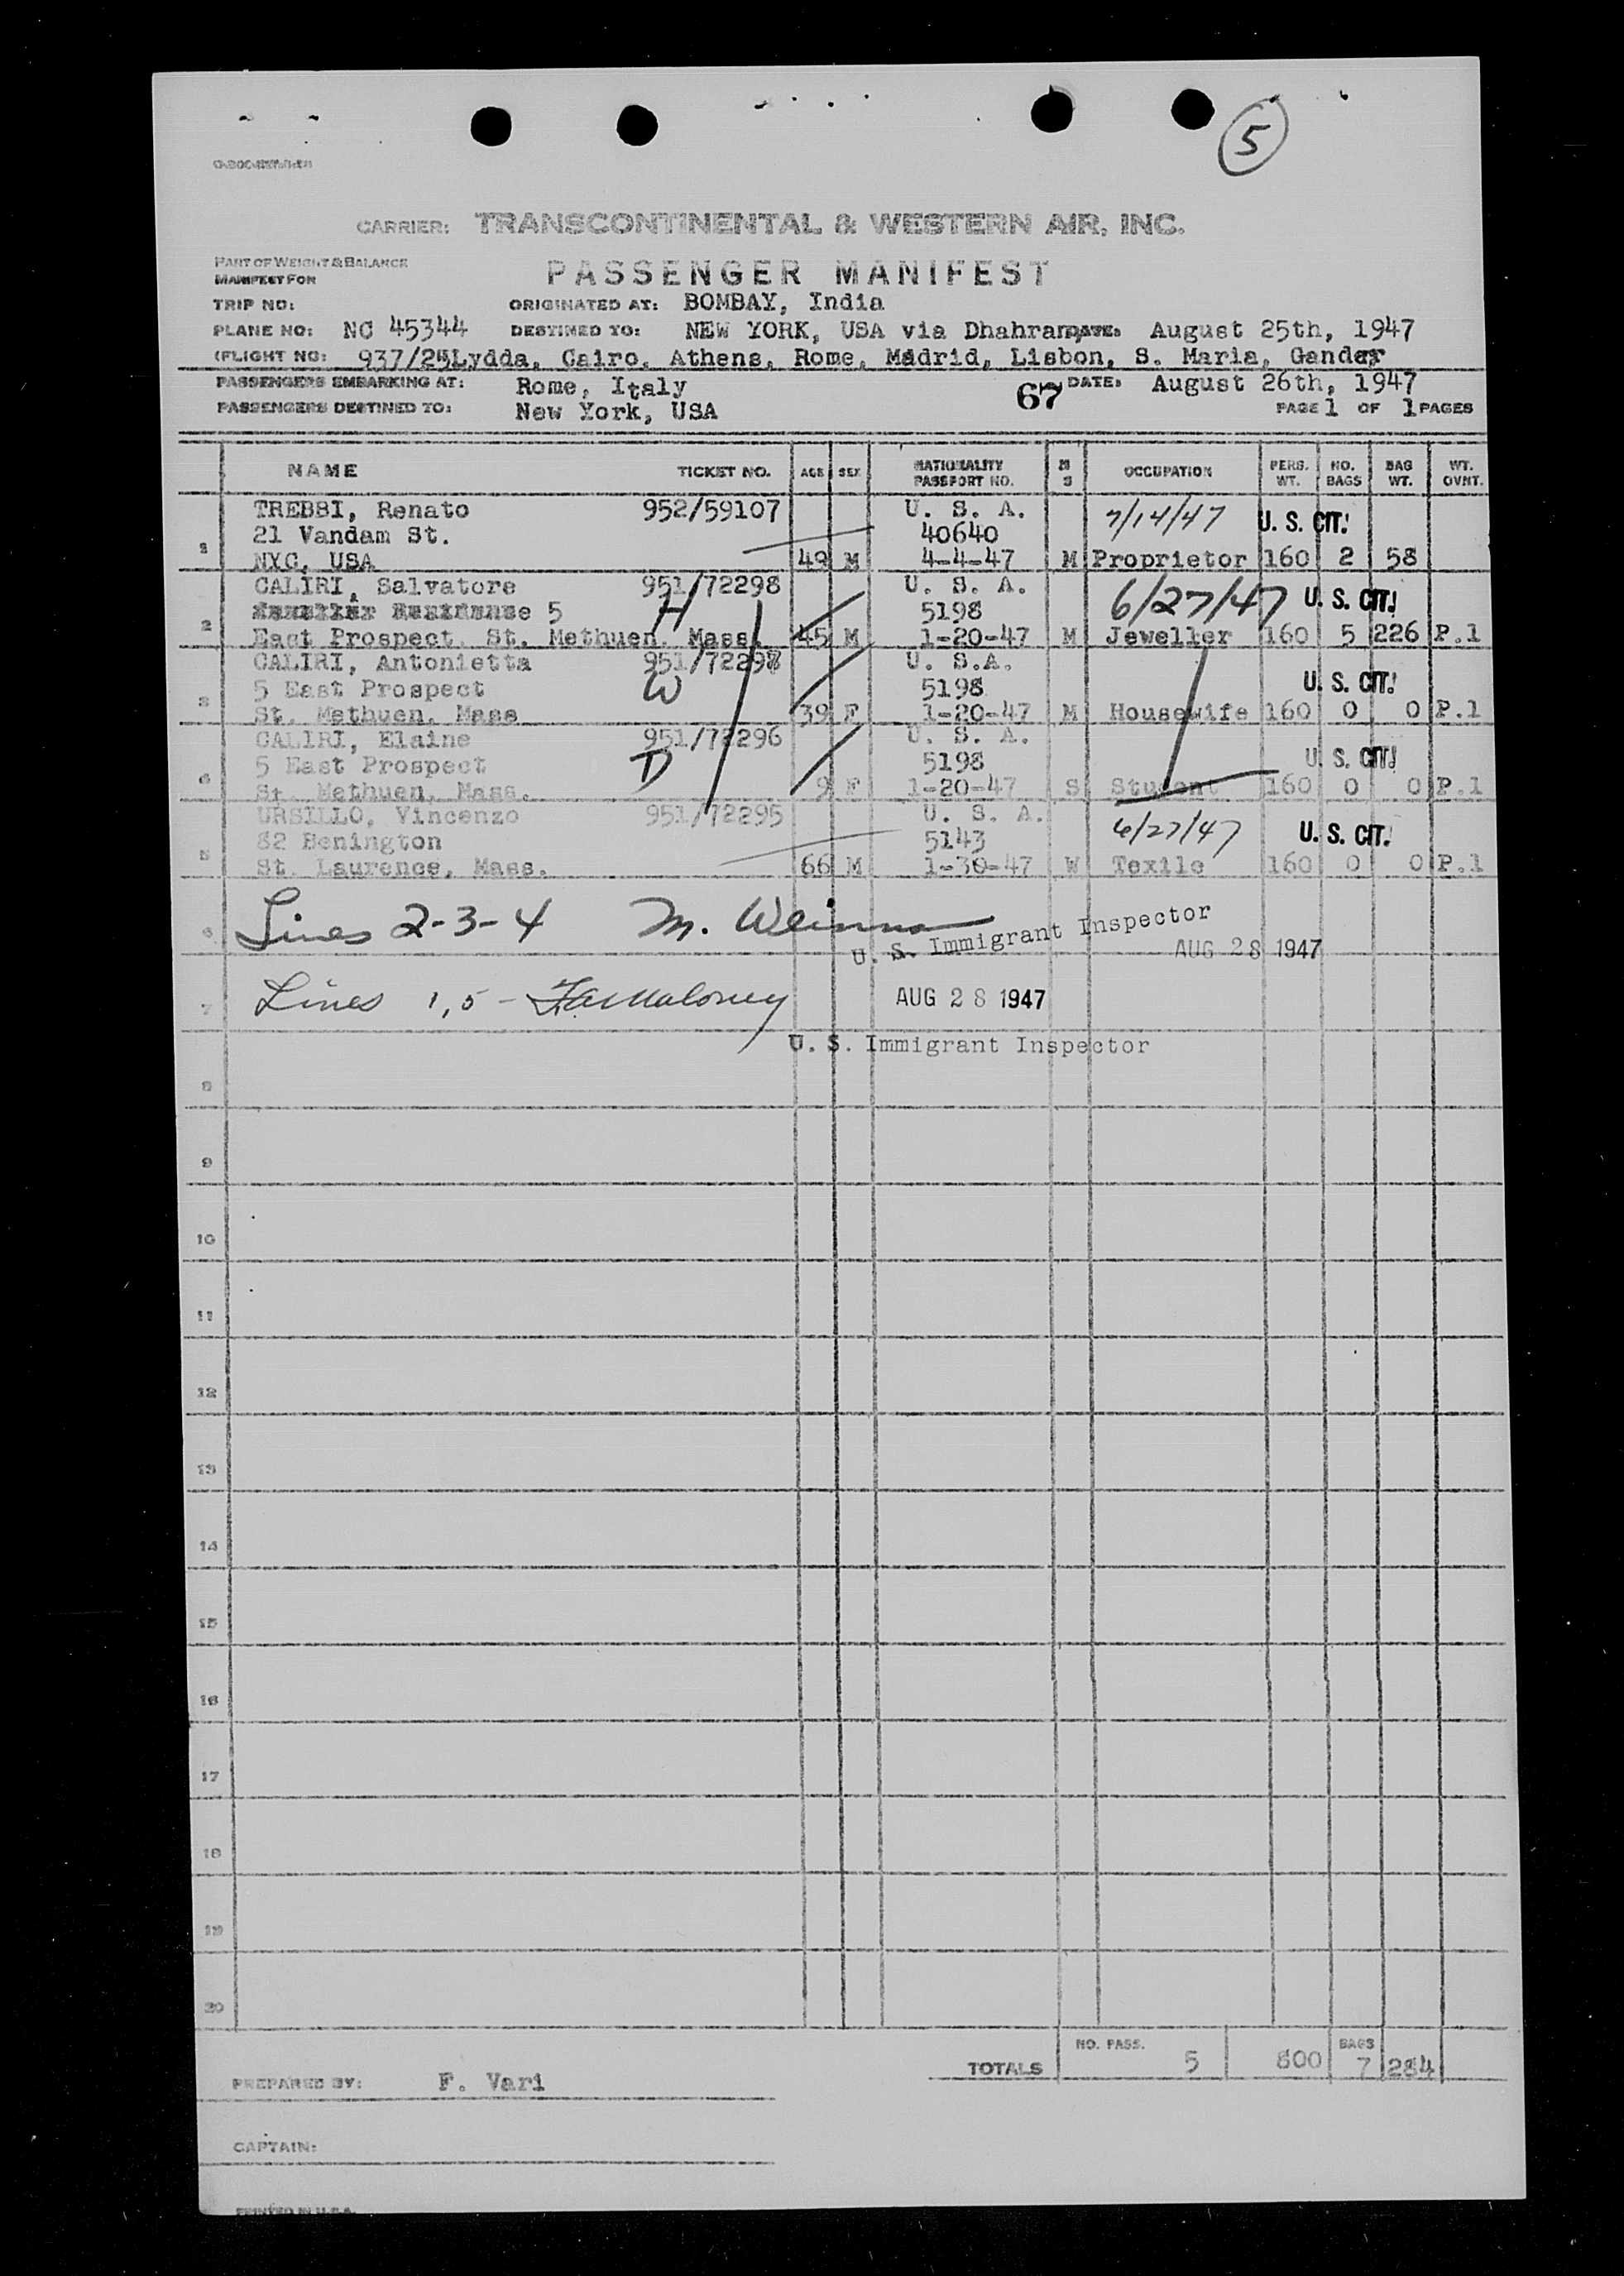 5
CARRIER: TRANSCONTINENTAL & WESTERN AIR, INC.
PART OF WEIGHT & BALANCE
MANIFEST FOR
PASSENGER MANIFEST
TRIP NO: ORIGINATED AT: BOMBAY, India
PLANE NO: NC 45344 DESTINED TO: NEW YORK, USA via Dhahran, DATE: August 25th, 1947
(FLIGHT NO: 937/25 Lydda, Cairo, Athens, Rome, Madrid, Lisbon, S. Maria, Gander
PASSENGERS EMBARKING AT: Rome, Italy 67 DATE: August 26th, 1947
PASSENGERS DESTINED TO: New York, USA PAGE 1 OF 1 PAGES
NAME TICKET NO. AGE SEX NATIONALITY PASSPORT NO. M S OCCUPATION PERS. WT. NO. BAGS BAG WT. WT. OVNT.
TREBBI, Renato 952/59107 U. S. A. 7/14/47 U. S. CIT.
21 Vandam St. 40640
1 NYC, USA 49 M 4-4-47 M Proprietor 160 2 58
CALIRI, Salvatore 951/72298 U. S. A. 6/27/47 U. S. CIT.
5 H 5198
2 East Prospect. St. Methuen, Mass. 45 M 1-20-47 M Jeweller 160 5 226 P.1
CALIRI, Antonietta 951/72297 U. S.A.
5 East Prospect W 5198 U. S. CIT.
3 St. Methuen, Mass 39 F 1-20-47 M Housewife 160 0 0 P.1
CALIRI, Elaine 951/72296 U. S. A.
5 East Prospect D 5198 U. S. CIT.
St. Methuen, Mass. 9 F 1-20-47 S Student 160 0 0 P.1
URSILLO, Vincenzo 951/72295 U. S. A. 6/27/47 U. S. CIT.
82 Benington 5143
5 St. Laurence, Mass. 66 M 1-30-47 W Texile 160 0 0 P.1
6 Lines 2-3-4 M.
U. S. Immigrant Inspector AUG 28 1947
7 Lines 1,5 - Maloney AUG 28 1947
U. S. Immigrant Inspector
8
9
10
11
12
13
14
15
16
17
18
19
20
TOTALS NO. PASS. 5 800 BAGS 7 284
PREPARED BY: F. Vari
CAPTAIN:
PRINTED IN U.S.A.